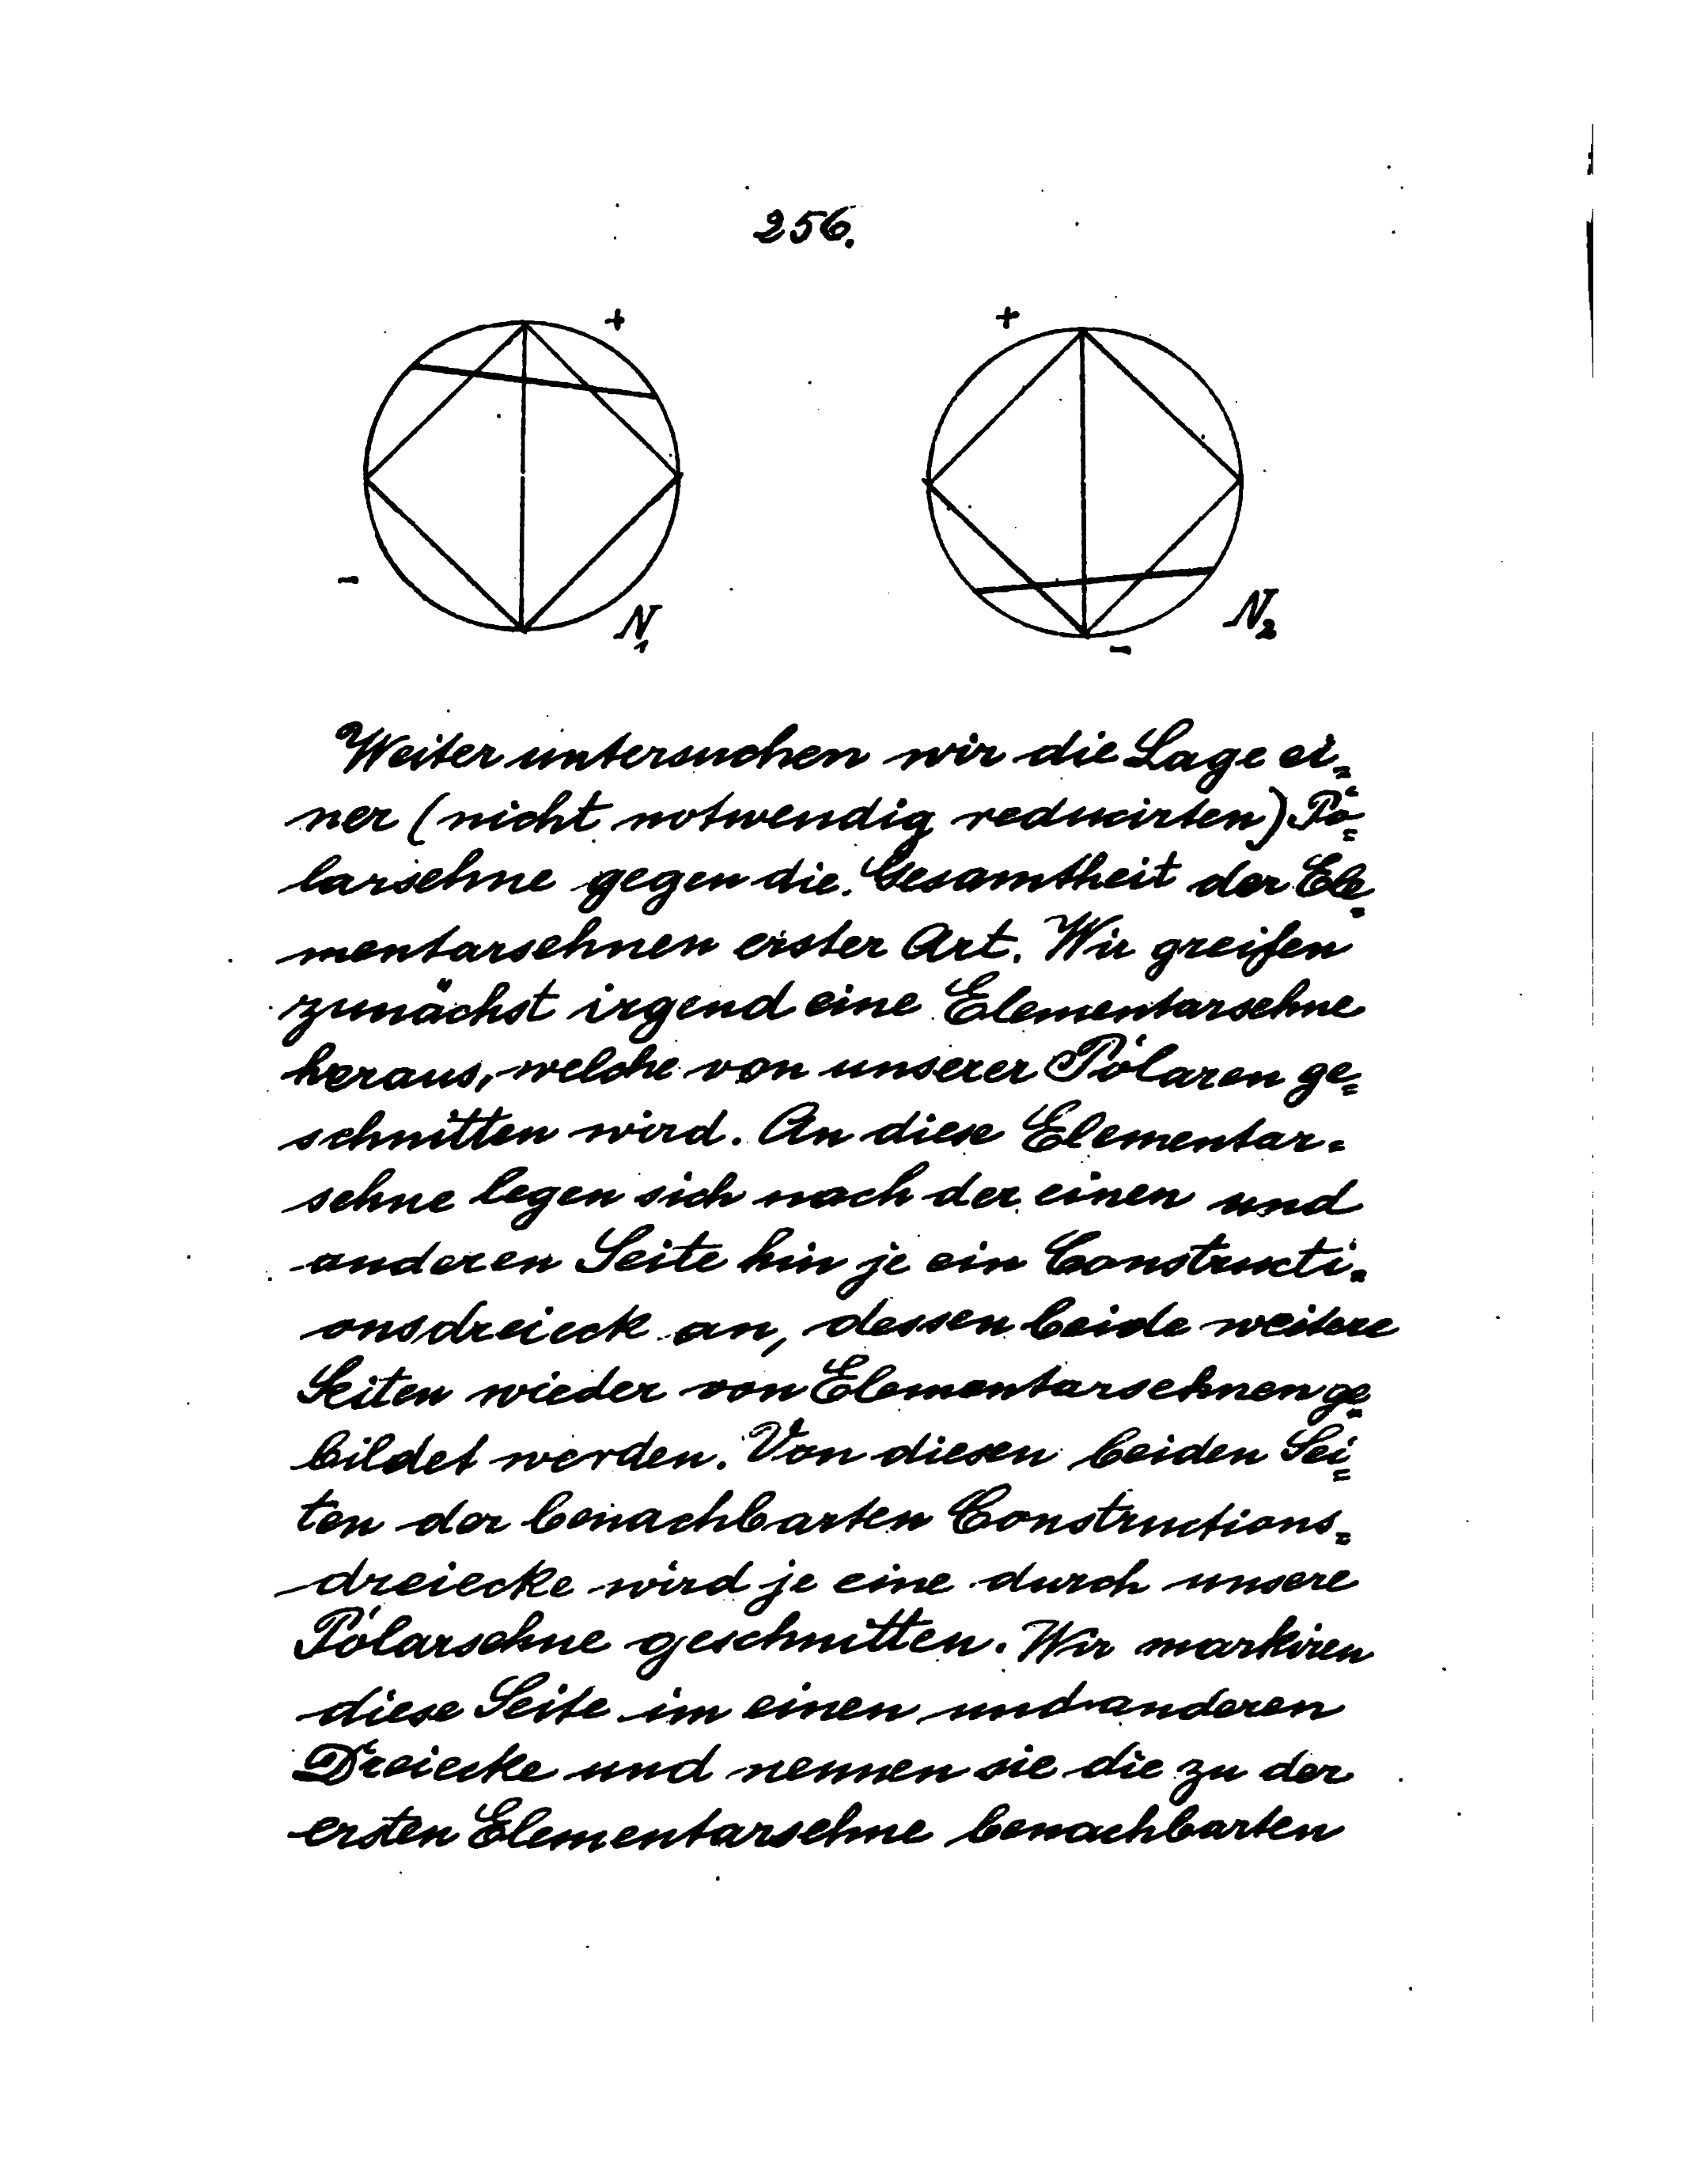 256.
+ +
- N₁ N₂
-
Weiter untersuchen wir die Lage ei=
ner (nicht notwendig reducirten) Po=
larsehne gegen die Gesamtheit der Ele=
mentarsehnen erster Art. Wir greifen
zunächst irgend eine Elementarsehne
heraus, welche von unserer Polaren ge=
schnitten wird. An diese Elementar=
sehne legen sich nach der einen und
anderen Seite hin je ein Constructi=
onsdreieck an, dessen beide weitere
Seiten wieder von Elementarsehnen ge=
bildet werden. Von diesen beiden Sei=
ten der benachbarten Constructions=
dreiecke wird je eine durch unsere
Polarsehne geschnitten. Wir markiren
diese Seite im einen und anderen
Dreiecke und nennen sie die zu der
ersten Elementarsehne benachbarten